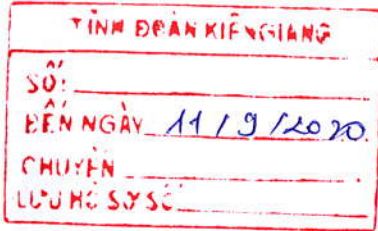 TỈNH ĐOÀN KIÊN GIANG
SỐ:
ĐẾN NGÀY 11/9/2020
CHUYỂN
LƯU HỒ SƠ SỐ